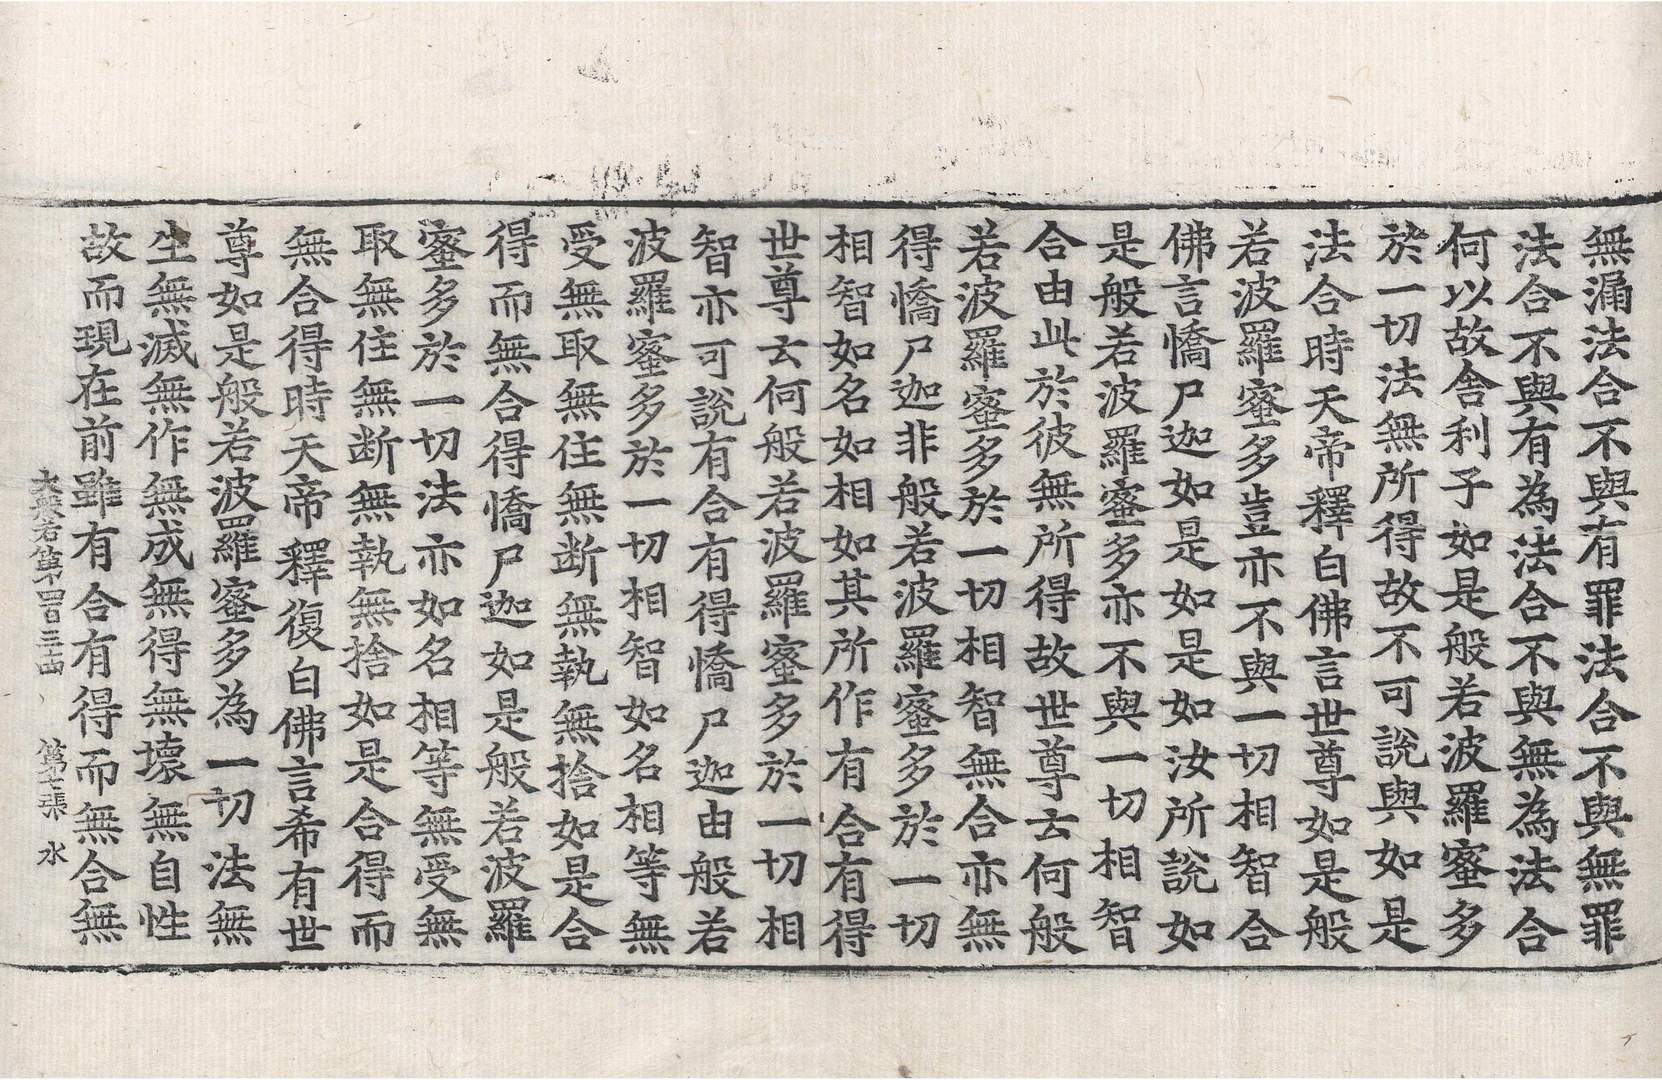 無漏法合不與有罪法合不與無罪
法合不與有為法合不與無為法合
何以故舍利子如是般若波羅蜜多
於一切法無所得故不可說與如是
法合時天帝釋白佛言世尊如是般
若波羅蜜多豈亦不與一切相智合
佛言憍尸迦如是如是如汝所說如
是般若波羅蜜多亦不與一切相智
合由此於彼無所得故世尊云何般
若波羅蜜多於一切相智無合亦無
得憍尸迦非般若波羅蜜多於一切
相智如名如相如其所作有合有得
世尊云何般若波羅蜜多於一切相
智亦可說有合有得憍尸迦由般若
波羅蜜多於一切相智如名相等無
受無取無住無断無執無捨如是合
得而無合得憍尸迦如是般若波羅
蜜多於一切法亦如名相等無受無
取無住無断無執無捨如是合得而
無合得時天帝釋復白佛言希有世
尊如是般若波羅蜜多為一切法無
生無滅無作無成無得無壞無自性
故而現在前雖有合有得而無合無
大般若第四百三十四 第七張 水